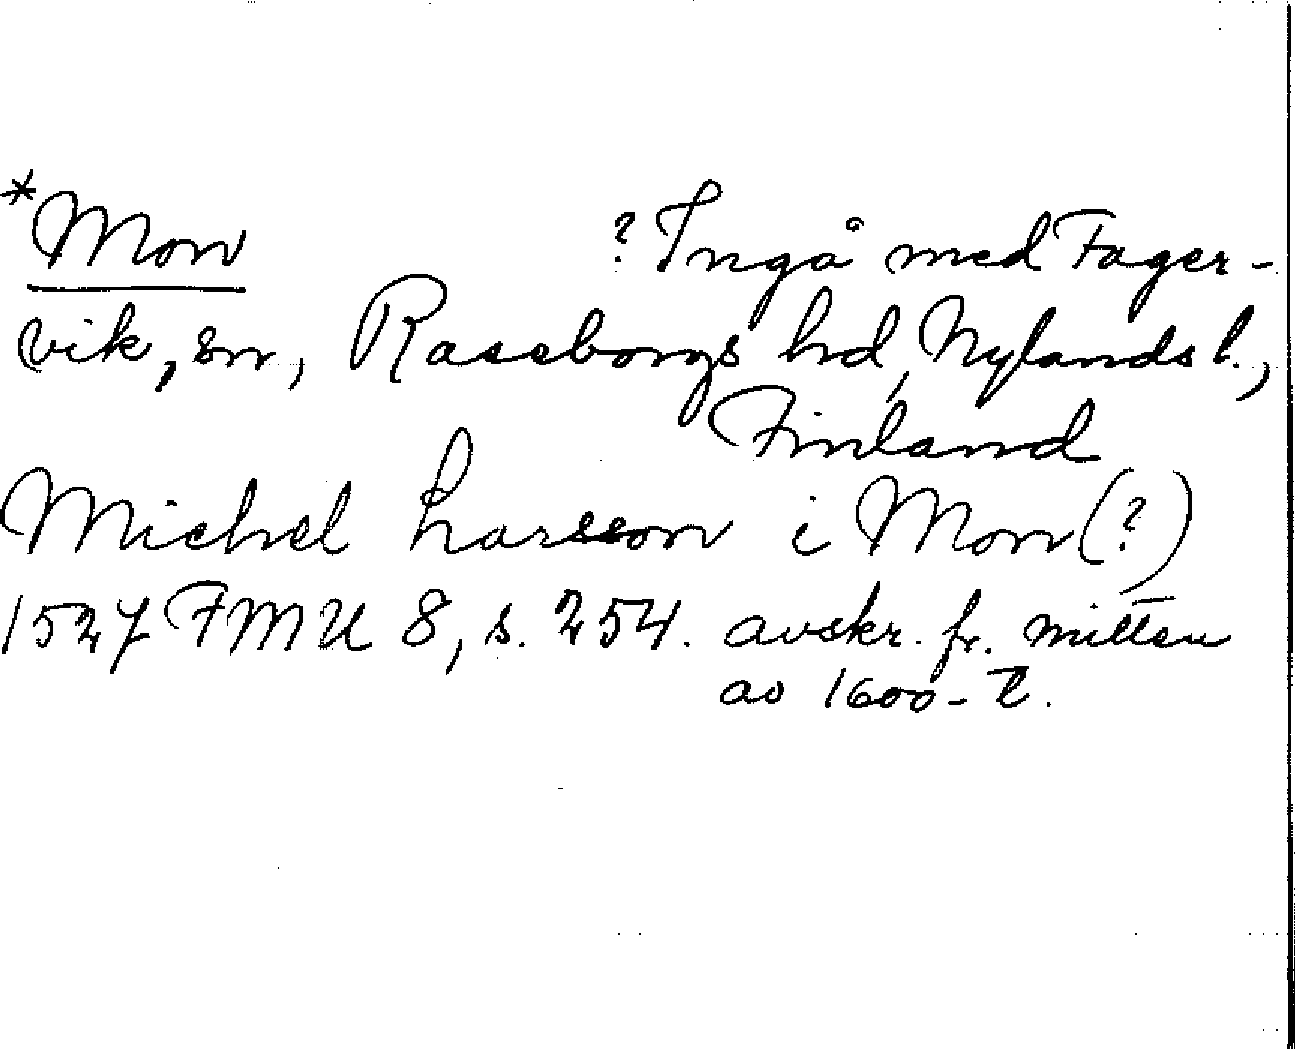 *Mon ? Ingå med Fager-
vik, sn, Raseborgs hd, Nylands l.,
Finland
Michel Larsson i Mon (?)
1527 FMU 8, s. 254. avskr. fr. mitten
av 1600-t.